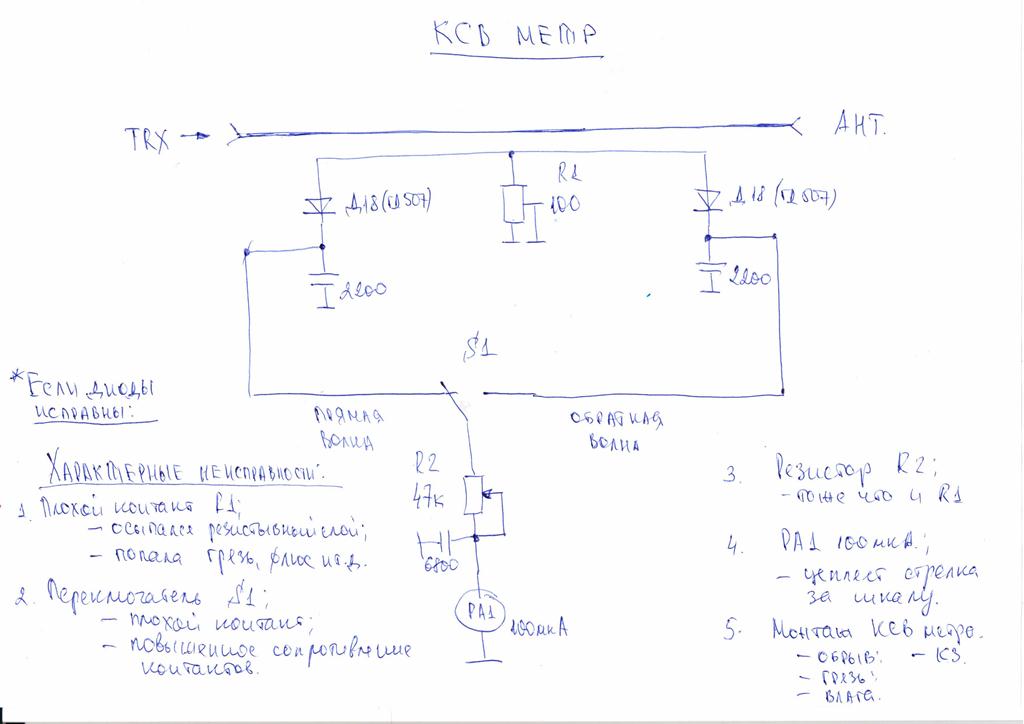 КСВ МЕТР
TRX
АНТ.
R1
100
Д18(ГД507)
Д18(ГД507)
2200
2200
S1
*Если диоды
исправны:
ПРЯМАЯ
ВОЛНА
ОБРАТНАЯ
ВОЛНА
Характерные неисправности:
1. Плохой контакт R1;
- осыпался резистывный слой;
- попала грезь, флюс и т.д.
2. Переключатель S1;
- плохой контакт;
- повышенное сопротивление
контактов.
R2
47к
6800
PA1
100мкА
3. Резистор R2;
- тоже что и R1
4. PA1 100мкА;
- цепляет стрелка
за шкалу.
5. Монтаж КСВ метра.
- ОБРЫВ: - КЗ.
- ГРЯЗЬ:
- ВЛАГА.